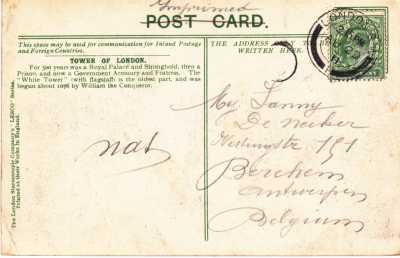 Imprimed
POST CARD.
This space may be used for communication for Inland Postage
and Foreign Countries.
THE ADDRESS ONLY TO BE
WRITTEN HERE.
TOWER OF LONDON.
For 500 years was a Royal Palace and Stronghold, then a
Prison, and now a Government Armoury and Fortress. The
"White Tower" (with flagstaff) is the oldest part, and was
begun about 1078 by William the Conqueror.
The London Stereoscopic Company's "LESCO" Series.
Printed at their Works in England.
LONDON
nat
My. Fanny
De
Berchem
Antwerpen
Belgium